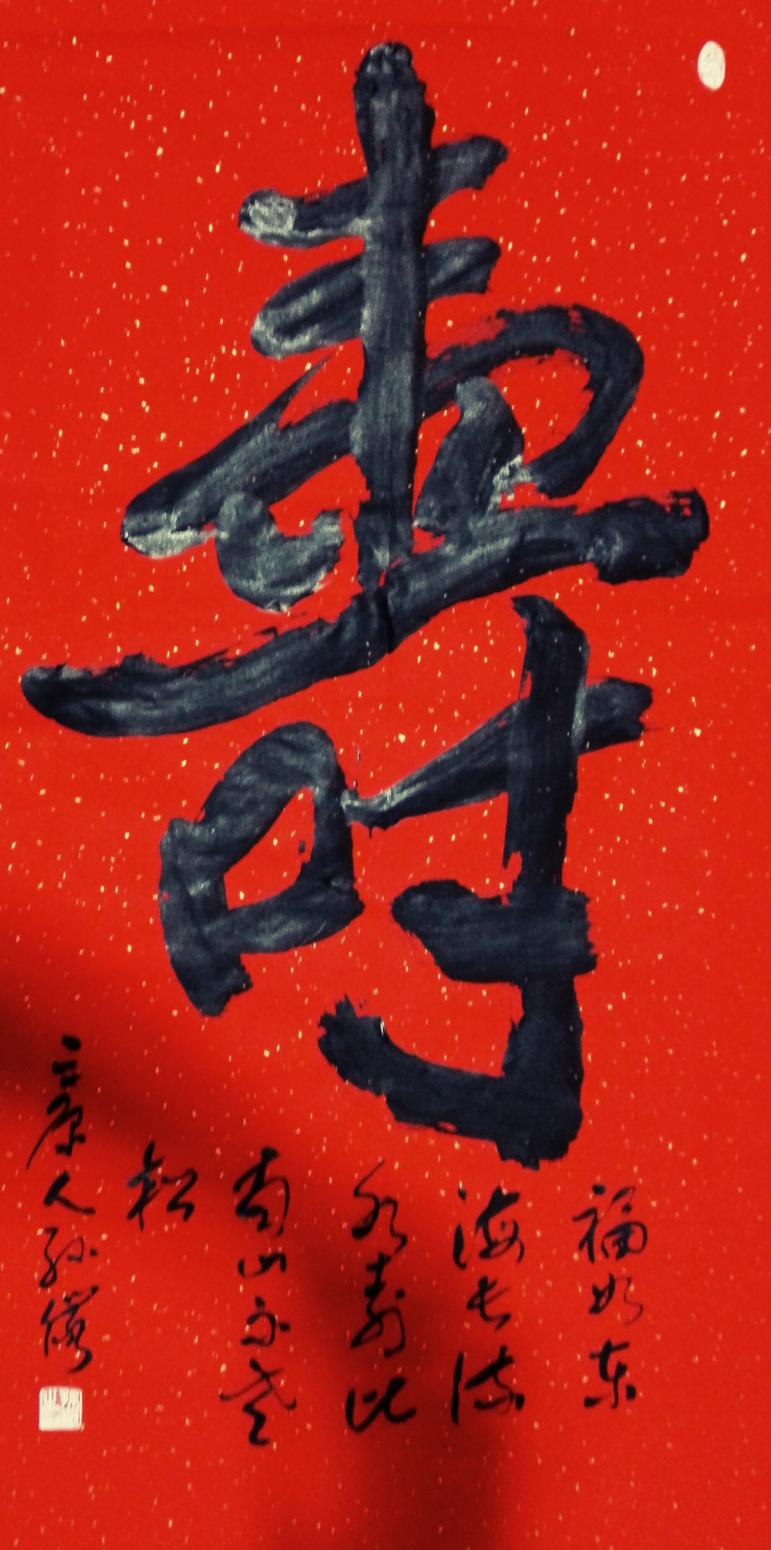 壽
福如东
海长流
水寿比
南山不老
松
京人孙